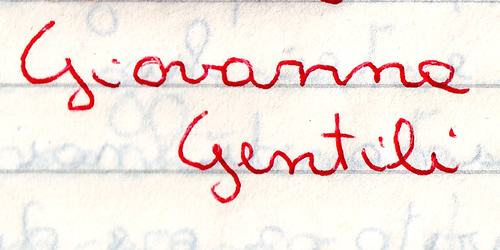 Giovanna
Gentili